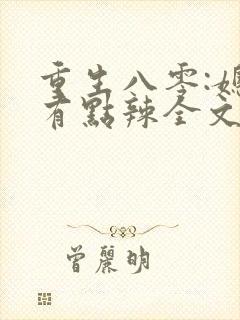 重生八零:媳
有點辣全文
曾麗明